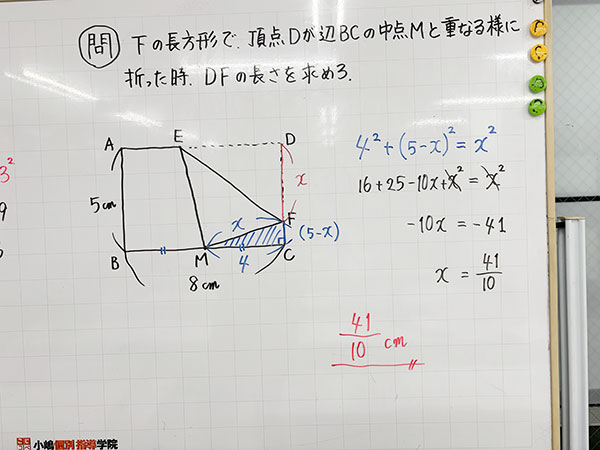 問 下の長方形で、頂点Dが辺BCの中点Mと重なる様に
折った時、DFの長さを求めろ.
A E D
5cm
x
x F
(5-x)
B M 4 C
8cm
4² + (5-x)² = x²
16+25-10x+x² = x²
-10x = -41
x = 41/10
41/10 cm
3²
9
小嶋個別指導学院